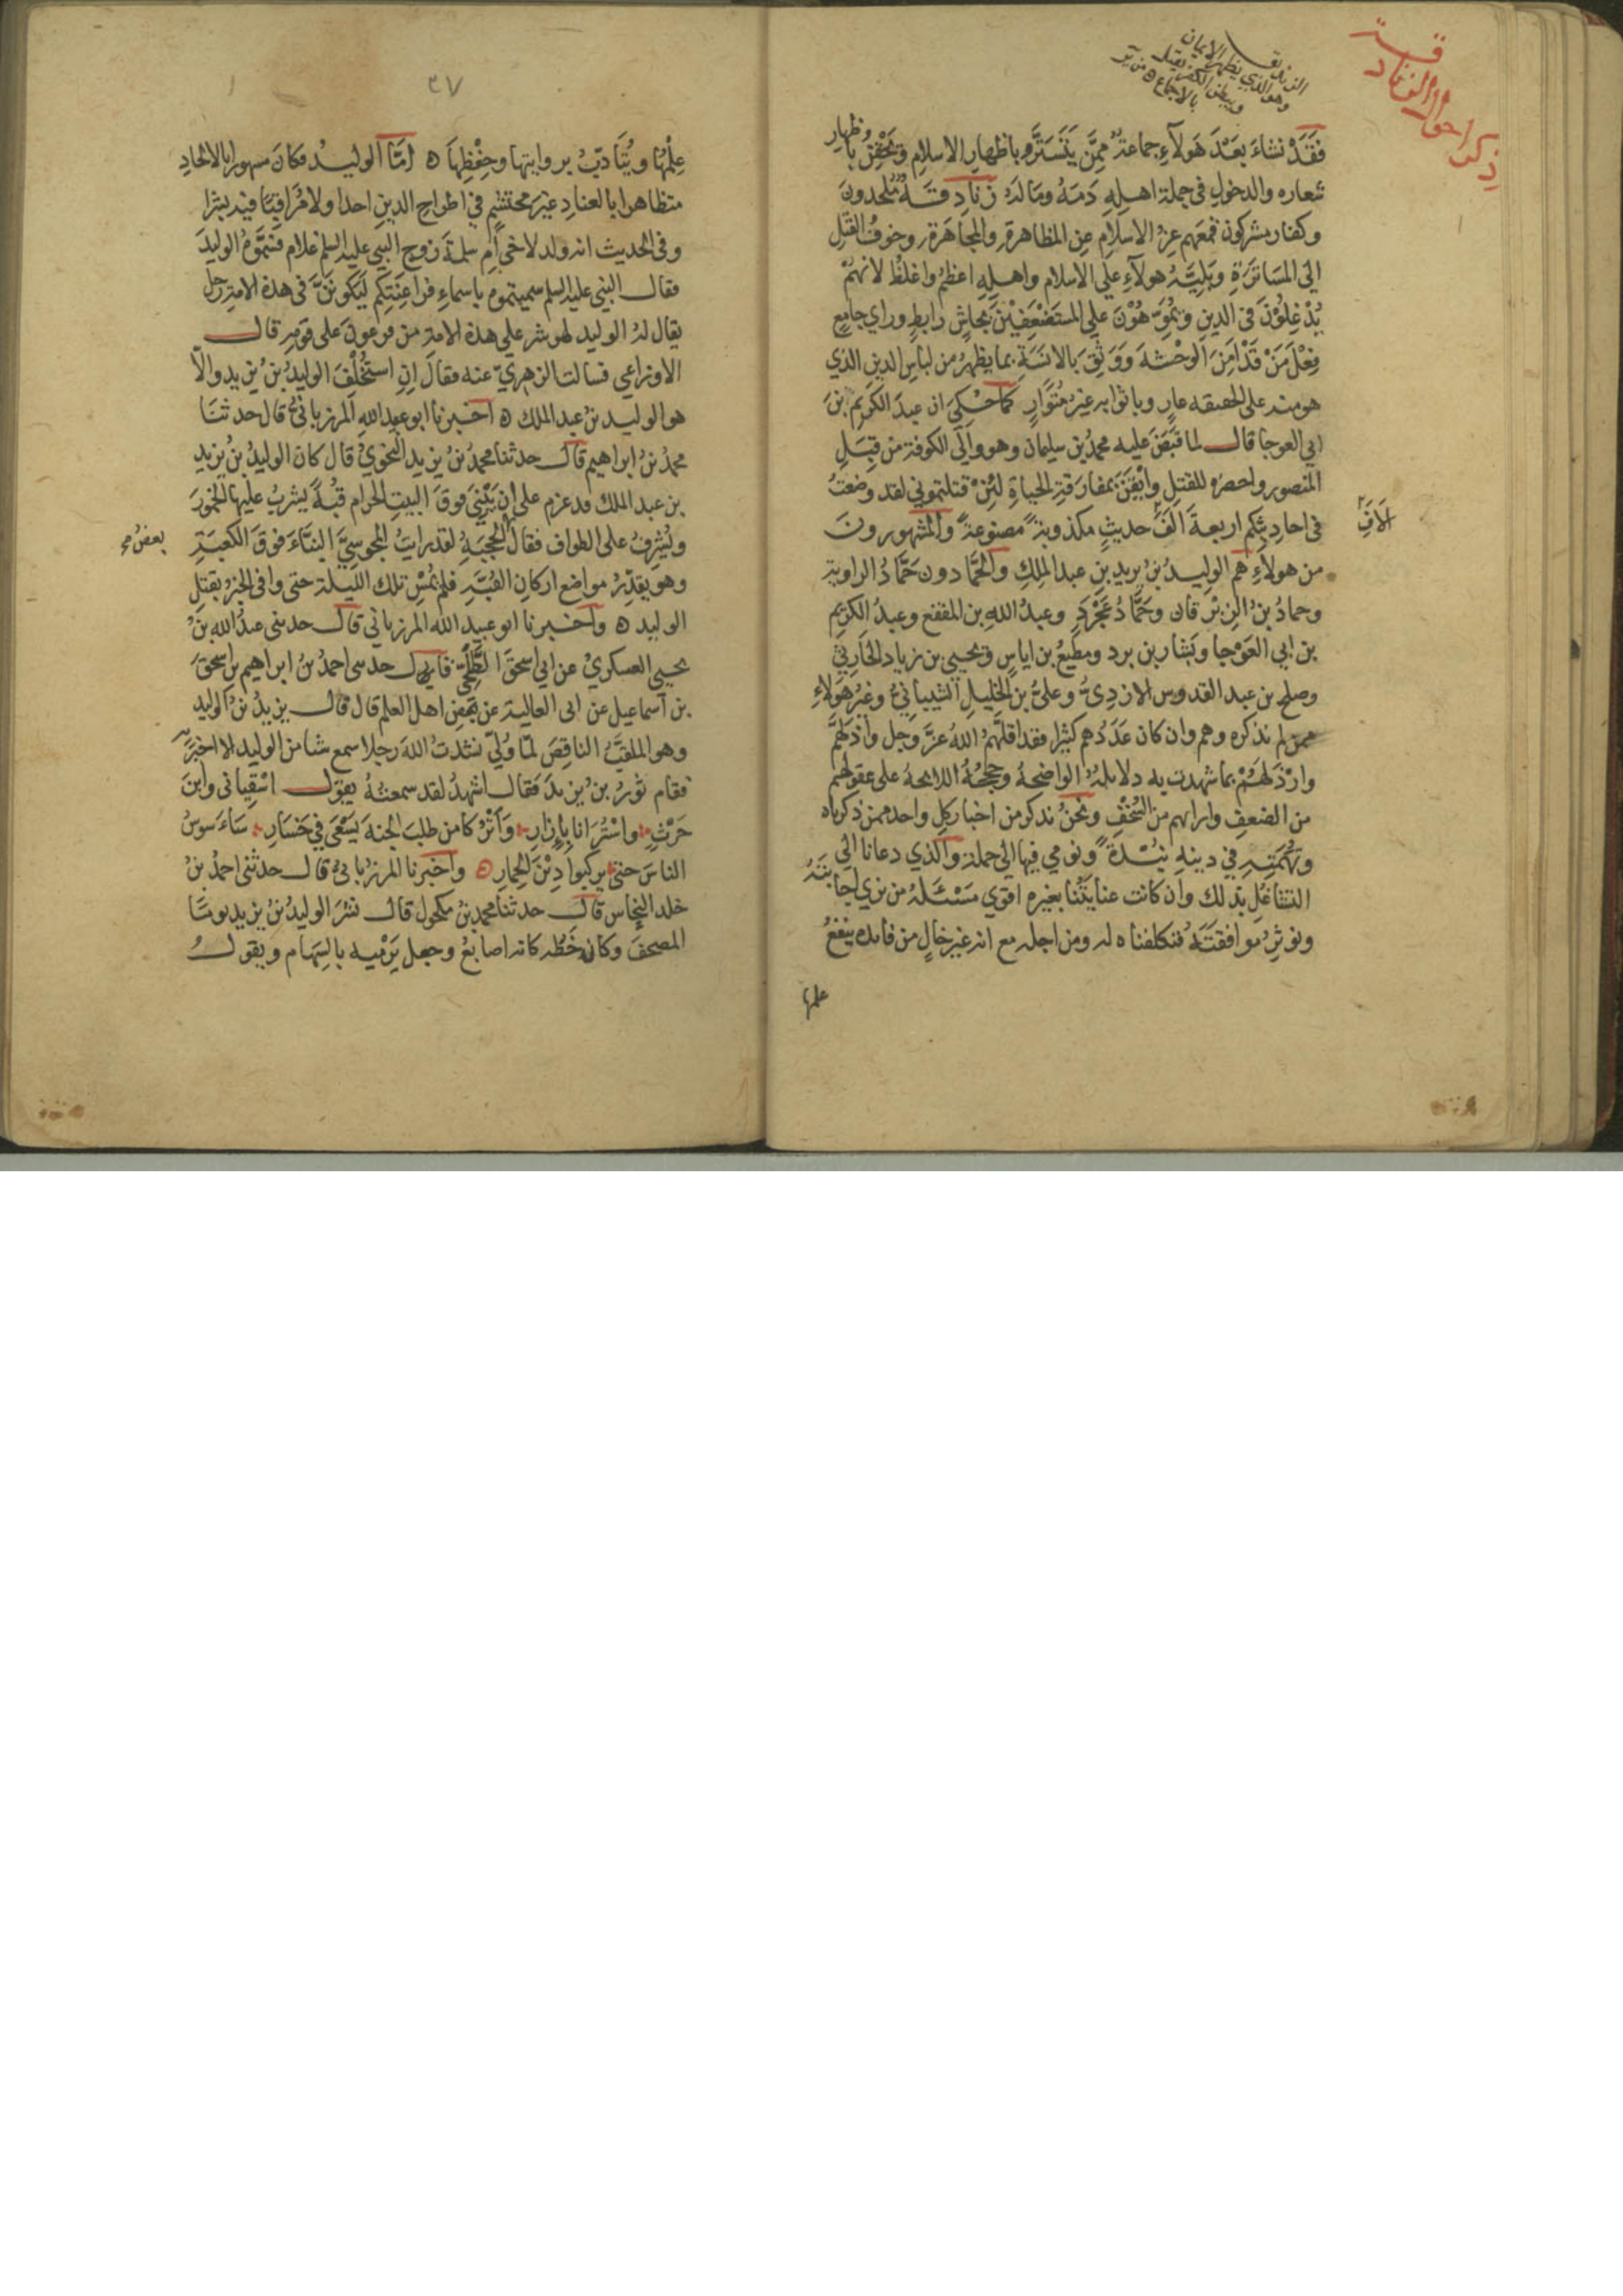 ذكر احوال الزنادقة
الزنديق
وهو الذي يظهر الايمان
ويبطن الكفر يقتل
بالاجماع
فَقَدْ نشاءَ بَعْدَ هَولآءِ جماعةٌ مِمَّن يَتَسَتَّرُ باظهارِ الاسلامِ وَيَحْقِنُ باظهارِ
شعاره والدخولِ في جملة اهلِهِ دَمَهُ ومَالَهُ زَنَادِقَةٌ مُلْحدونَ
وكفار مشركون فمعهم عِزُّ الاسلامِ عن المظاهرة والمجاهَرَة وخوفُ القَتْلِ
الى المسَاترَةِ وبَلِيَّةُ هولآءِ على الاسلام واهلِهِ اعظمُ واغلظُ لانهُمْ
يُدْغِلُوْنَ في الدينِ وَيُمَوِّهُوْنَ على المستَضْعَفِيْنَ بجاشٍ رابطٍ وراي جامعٍ
فِعْلَ مَنْ قَدْ اَمِنَ الوَحْشَةَ وَوَثِقَ بالانَسَةِ بما يظهرُ من لباسِ الدين الذي
هو منه على الحقيقه عارٍ وباثوابه غيرُ مُتَوَارٍ كَمَا حُكِيَ ان عبدَ الكَريم بنَ
ابي العوجا قال لما قَبَضَ عليه محمدُ بن سليمان وهو والي الكوفة من قِبَلِ
المنصور واحضرَهُ للقتلِ وايْقَنَ بمفارَقةِ الحياةِ لَئِنْ قتلتموني لقد وضَعتُ
في احاديثِكُم اربعةَ الفَ حديثٍ مكذوبةً مصنوعةً والمشهورونَ
الافَ
من هولاءِ هم الوليدُ بنُ يزيد بنِ عبد الملِكِ والحَمَّادون حَمَّادُ الراوية
وحمادُ بنُ الزِبْرقان وحَمَّادُ عَجْرَدٍ وعبدُ اللهِ بن المقفع وعبدُ الكريم
بن ابي العَوْجَا وبَشار بن برد ومطيعُ بن اياسٍ ويحيى بن زياد الحَارِثيّ
وصلح بن عبد القدوس الازدِيُّ وعليُّ بن الخليلِ الشيبانيُّ وغيرُ هَولاءِ
ممن لم نذكره وهم وان كان عَدَدُهم كثيرا فقد اقلَّهُمُ اللهُ عَزَّ وَجل واذلَّهُمْ
وارْذَلَهُمْ بما شهدت به دلايلهُ الواضحةُ وحججُهُ اللايحةُ على عقولهم
من الضعفِ وارايهم من السُخْفِ ونحنُ نذكر من اخبار كلِ واحد ممن ذكرناه
وتُهْمَتِه في دينهِ نُبْذةً ونومي فيها الى جملة والذي دعانا الى
التشاغُلِ بذلك وان كانت عنايتُنَا بغيره اقوي مَسْئَلَةُ من نري اجابتَهُ
ونوثِرُ موافقَتَهُ فتكلفناه له ومن اجله مع انه غير خالٍ من فائده ينفعُ
علمها
٣٧
عِلْمُهَا ويُتَادَّبُ بروايتها وحِفْظِهَا اَمَّا الوليدُ فكانَ مشهورا بالالحادِ
متظاهرا بالعنادِ غيرَ محتشِمٍ في اطراحِ الدينِ احدا ولا مُرَاقِبًا فيه بشرا
وفي الحديث انه ولد لاخي اُمِ سلمةَ زوج النبي عليه السلم غلام فسَمَّوهُ الوليدَ
فقال النبي عليه السلم سميتموه باسماءِ فراعِنَتِكم لَيَكونَنَّ في هذه الامة رجل
يقال له الوليد لهو شر على هذه الامة من فرعونَ على قومِه قال
الاوزاعي فسالت الزهريّ عنه فقالَ اِنِ استُخْلِفَ الوليدُ بنُ يزيد والاّ
هو الوليد بنُ عبد الملك اخبرنا ابو عبيد اللهِ المرزبانيُّ قال حدثنَا
محمدُ بنُ ابراهيم قال حدثنا محمدُ بنُ يزيد النحويُّ قال كان الوليدُ بنُ يزيد
بن عبد الملك قد عزم على ان يَبْنِيَ فوقَ البيتِ الحرام قُبةً يشربُ عليها الخمُورَ
ويُشرِفُ على الطواف فقال الحجَبَةِ لقد رايتُ المجوسِيَّ البَنَّاءَ فوقَ الكعبَةِ
بعضُ صح
وهو يقدِّرُ مواضع اركانِ القُبَّةِ فلم تُمْسِ تلك الليلة حتى وافى الخبرُ بقتلِ
الوليد واخبرنا ابو عبيد الله المرزباني قال حدثني عبدُ الله بنُ
يحيى العسكريُّ عن ابي اسحقَ الطَّلْحِيِّ قال حدثني احمدُ بنُ ابراهيم بن اسحقَ
بن اسماعيل عن ابي العالية عن بَعضِ اهل العلم قال قال يزيدُ بنُ الوليد
وهو الملقبُ الناقِصَ لمّا وُلِّي نشدتُ اللهَ رجلا سمع شيا من الوليد الا اخبرَ به
فقام ثورُ بنُ يزيدَ فقال اشهدُ لقد سمعتُهُ يقول اسْقِيانى وابنَ
حَرْثٍ واسْتُرَانا بِاِزَارٍ وَاتْرُكا من طلبَ الجنةَ يَسْعَى في خَسَارِ سَاءَسُوسُ
الناسَ حتى يركبوا دِيْنَ الحِمارِ واخبرنا المرزبانيُّ قال حدثني احمدُ بنُ
خلد النحاس قال حدثنا محمد بنُ مكحول قال نشرَ الوليدُ بنُ يزيد يومًا
المصحفَ وكان خَطُّه كانه اصابعُ وجعل يَرْميه بالسِهَام ويقول